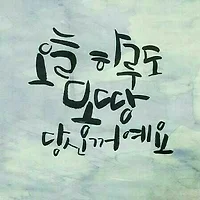 오늘 하루도
모땅
당신꺼예요